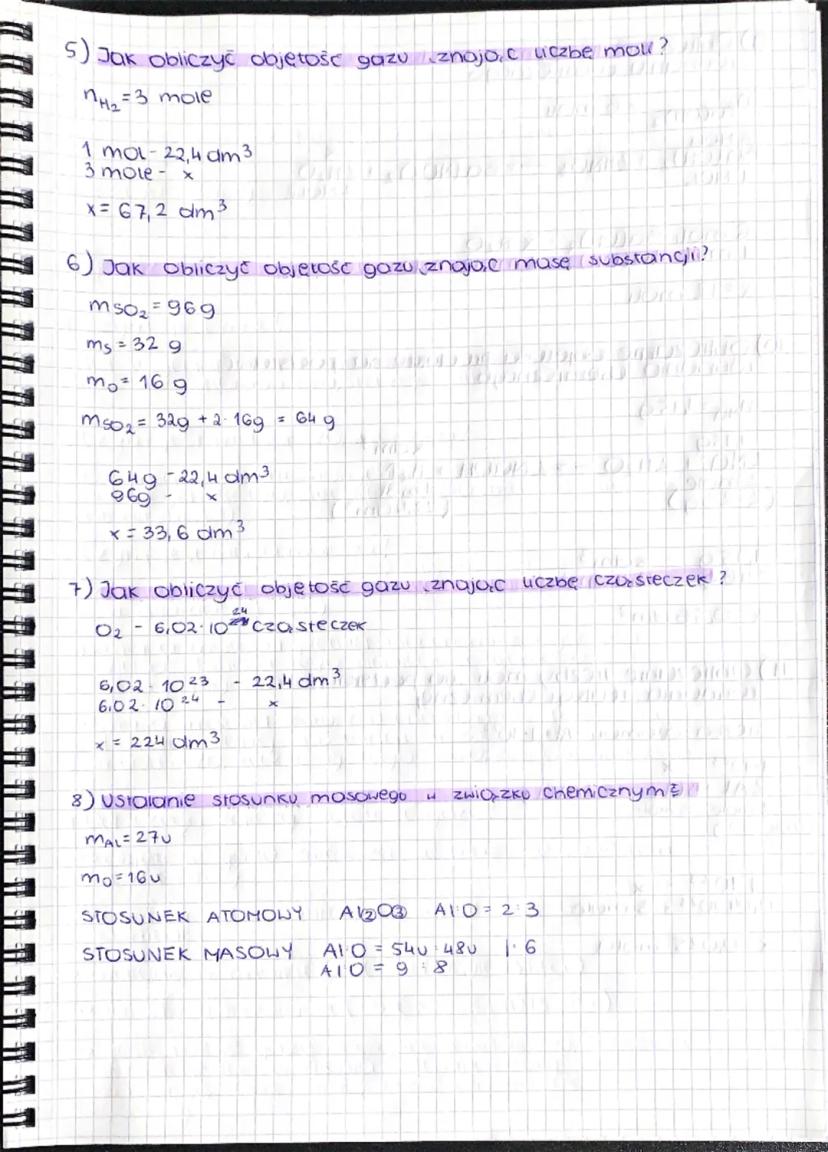 5) Jak obliczyć objętość gazu znając liczbę moli?
nH₂ = 3 mole
1 mol - 22,4 dm³
3 mole - x
x = 67,2 dm³
6) Jak obliczyć objętość gazu znając masę substancji?
mSO₂ = 96g
mS = 32 g
mO = 16 g
mSO₂ = 32g + 2·16g = 64 g
64g - 22,4 dm³
96g - x
x = 33,6 dm³
7) Jak obliczyć objętość gazu znając liczbę cząsteczek?
O₂ - 6,02·10²⁴ cząsteczek
6,02·10²³ - 22,4 dm³
6,02·10²⁴ - x
x = 224 dm³
8) Ustalanie stosunku masowego w związku chemicznym
mAl = 27u
mO = 16u
STOSUNEK ATOMOWY Al₂O₃ Al:O = 2:3
STOSUNEK MASOWY Al:O = 54u:48u |:6
Al:O = 9:8